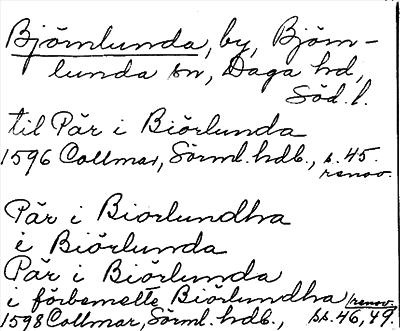 Björnlunda, by, Björn-
lunda sn, Daga hd,
Söd. l.
til Pär i Biörlunda
1596 Collmar, Sörml. hdb., s. 45.
renov.
Pär i Biorlundha
i Biörlunda
Pär i Biörlunda
i förbemelte Biörlundha renov.
1598 Collmar, Sörml. hdb., ss. 46, 49.